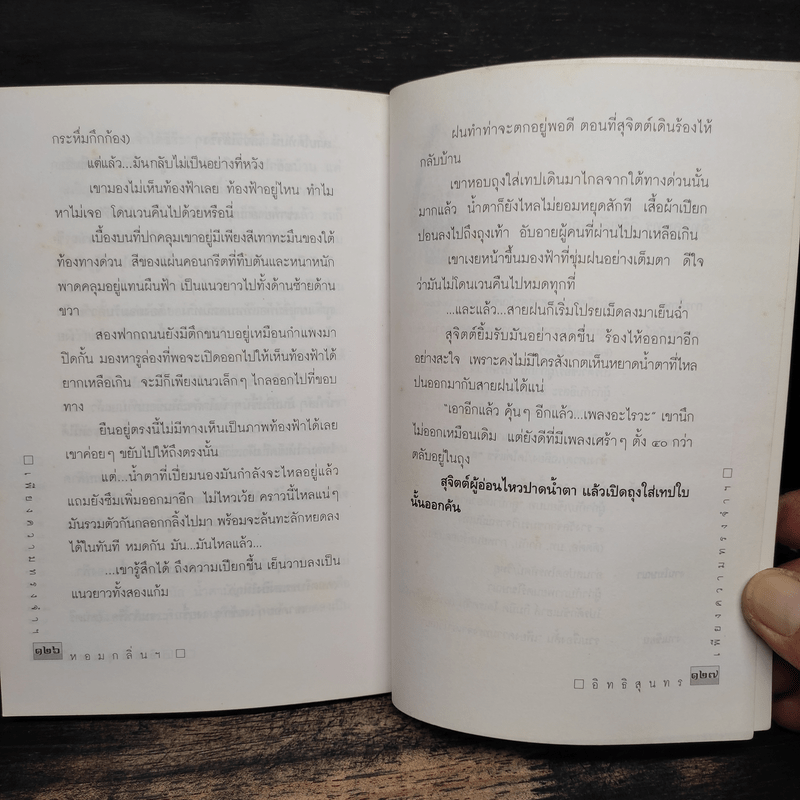 กระหึ่มกึกก้อง)
แต่แล้ว...มันกลับไม่เป็นอย่างที่หวัง
เขามองไม่เห็นท้องฟ้าเลย ท้องฟ้าอยู่ไหน ทำไม
หาไม่เจอ โดนเวนคืนไปด้วยหรือนี่
เบื้องบนที่ปกคลุมเขาอยู่มีเพียงสีเทาทะมึนของใต้
ท้องทางด่วน สีของแผ่นคอนกรีตที่ทึบตันและหนาหนัก
พาดคลุมอยู่แทนผืนฟ้า เป็นแนวยาวไปทั้งด้านซ้ายด้าน
ขวา
สองฟากถนนยังมีตึกขนาบอยู่เหมือนกำแพงมา
ปิดกั้น มองหารูล่องที่พอจะเปิดออกไปให้เห็นท้องฟ้าได้
ยากเหลือเกิน จะมีก็เพียงแนวเล็กๆ ไกลออกไปที่ขอบ
ทาง
ยืนอยู่ตรงนี้ไม่มีทางเห็นเป็นภาพท้องฟ้าได้เลย
เขาค่อยๆ ขยับไปให้ถึงตรงนั้น
แต่...น้ำตาที่เปี่ยมนองมันกำลังจะไหลอยู่แล้ว
แถมยังซึมเพิ่มออกมาอีก ไม่ไหวเว้ย คราวนี้ไหลแน่ๆ
มันรวมตัวกันกลอกกลิ้งไปมา พร้อมจะล้นทะลักหยดลง
ได้ในทันที หมดกัน มัน...มันไหลแล้ว...
...เขารู้สึกได้ ถึงความเปียกชื้น เย็นวาบลงเป็น
แนวยาวทั้งสองแก้ม
เพียงความทรงจำฯ
๑๒๖ หอมกลิ่นฯ
ฝนทำท่าจะตกอยู่พอดี ตอนที่สุจิตต์เดินร้องไห้
กลับบ้าน
เขาหอบถุงใส่เทปเดินมาไกลจากใต้ทางด่วนนั้น
มากแล้ว น้ำตาก็ยังไหลไม่ยอมหยุดสักที เสื้อผ้าเปียก
ปอนลงไปถึงถุงเท้า อับอายผู้คนที่ผ่านไปมาเหลือเกิน
เขาเงยหน้าขึ้นมองฟ้าที่ชุ่มฝนอย่างเต็มตา ดีใจ
ว่ามันไม่โดนเวนคืนไปหมดทุกที่
...และแล้ว...สายฝนก็เริ่มโปรยเม็ดลงมาเย็นฉ่ำ
สุจิตต์ยิ้มรับมันอย่างสดชื่น ร้องไห้ออกมาอีก
อย่างสะใจ เพราะคงไม่มีใครสังเกตเห็นหยาดน้ำตาที่ไหล
ปนออกมากับสายฝนได้แน่
“เอาอีกแล้ว คุ้นๆ อีกแล้ว...เพลงอะไรวะ” เขานึก
ไม่ออกเหมือนเดิม แต่ยังดีที่มีเพลงเศร้าๆ ตั้ง ๔๐ กว่า
ตลับอยู่ในถุง
สุจิตต์ผู้อ่อนไหวปาดน้ำตา แล้วเปิดถุงใส่เทปใบ
นั้นออกค้น
เพียงความทรงจำฯ
อิทธิสุนทร ๑๒๗